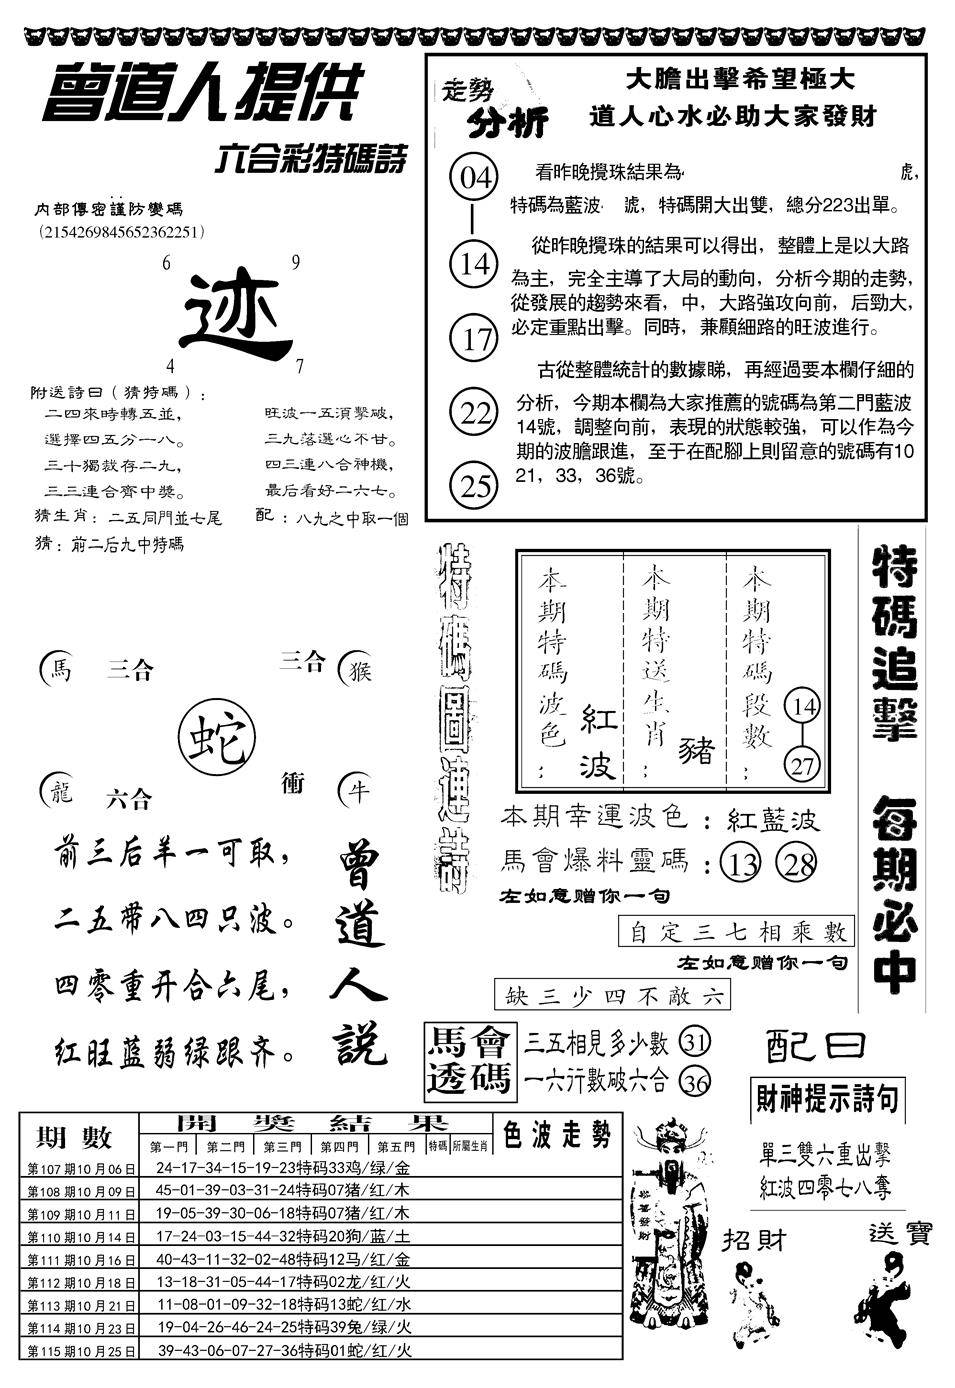 曾道人提供
六合彩特碼詩
内部傳密謹防變碼
(2154269845652362251)
6 9
迹
4 7
附送詩曰(猜特碼):
二四來時轉五並,
選擇四五分一八。
三十獨裁存二九,
三三連合齊中獎。
旺波一五須擊破,
三九落選心不甘。
四三連八合神機,
最后看好二六七。
猜生肖:二五同門並七尾
配:八九之中取一個
猜:前二后九中特碼
馬 三合
三合 猴
蛇
龍 六合
衝 牛
前三后羊一可取,
二五带八四只波。
四零重开合六尾,
红旺蓝弱绿跟齐。
曾道人說
走勢
分析
大膽出擊希望極大
道人心水必助大家發財
04
14
17
22
25
看昨晚攪珠結果為 虎,
特碼為藍波 號,特碼開大出雙,總分223出單。
從昨晚攪珠的結果可以得出,整體上是以大路
為主,完全主導了大局的動向,分析今期的走勢,
從發展的趨勢來看,中,大路強攻向前,后勁大,
必定重點出擊。同時,兼顧細路的旺波進行。
古從整體統計的數據睇,再經過要本欄仔細的
分析,今期本欄為大家推薦的號碼為第二門藍波
14號,調整向前,表現的狀態較強,可以作為今
期的波膽跟進,至于在配腳上則留意的號碼有10
21,33,36號。
特碼圖連詩
本期特碼波色:
紅波
本期特送生肖:
豬
本期特碼段數:
14
27
特碼追擊 每期必中
本期幸運波色:紅藍波
馬會爆料靈碼:13 28
左如意赠你一句
自定三七相乘數
左如意赠你一句
缺三少四不敵六
馬會透碼
三五相見多少數 31
一六行數破六合 36
配曰
財神提示詩句
單三雙六重出擊
紅波四零七八奪
招財
送寶
期數 開獎結果 色波走勢
第一門 第二門 第三門 第四門 第五門 特碼 所屬生肖
第107期10月06日 24-17-34-15-19-23特码33鸡/绿/金
第108期10月09日 45-01-39-03-31-24特码07猪/红/木
第109期10月11日 19-05-39-30-06-18特码07猪/红/木
第110期10月14日 17-24-03-15-44-32特码20狗/蓝/土
第111期10月16日 40-43-11-32-02-48特码12马/红/金
第112期10月18日 13-18-31-05-44-17特码02龙/红/火
第113期10月21日 11-08-01-09-32-18特码13蛇/红/水
第114期10月23日 19-04-26-46-24-25特码39兔/绿/火
第115期10月25日 39-43-06-07-27-36特码01蛇/红/火